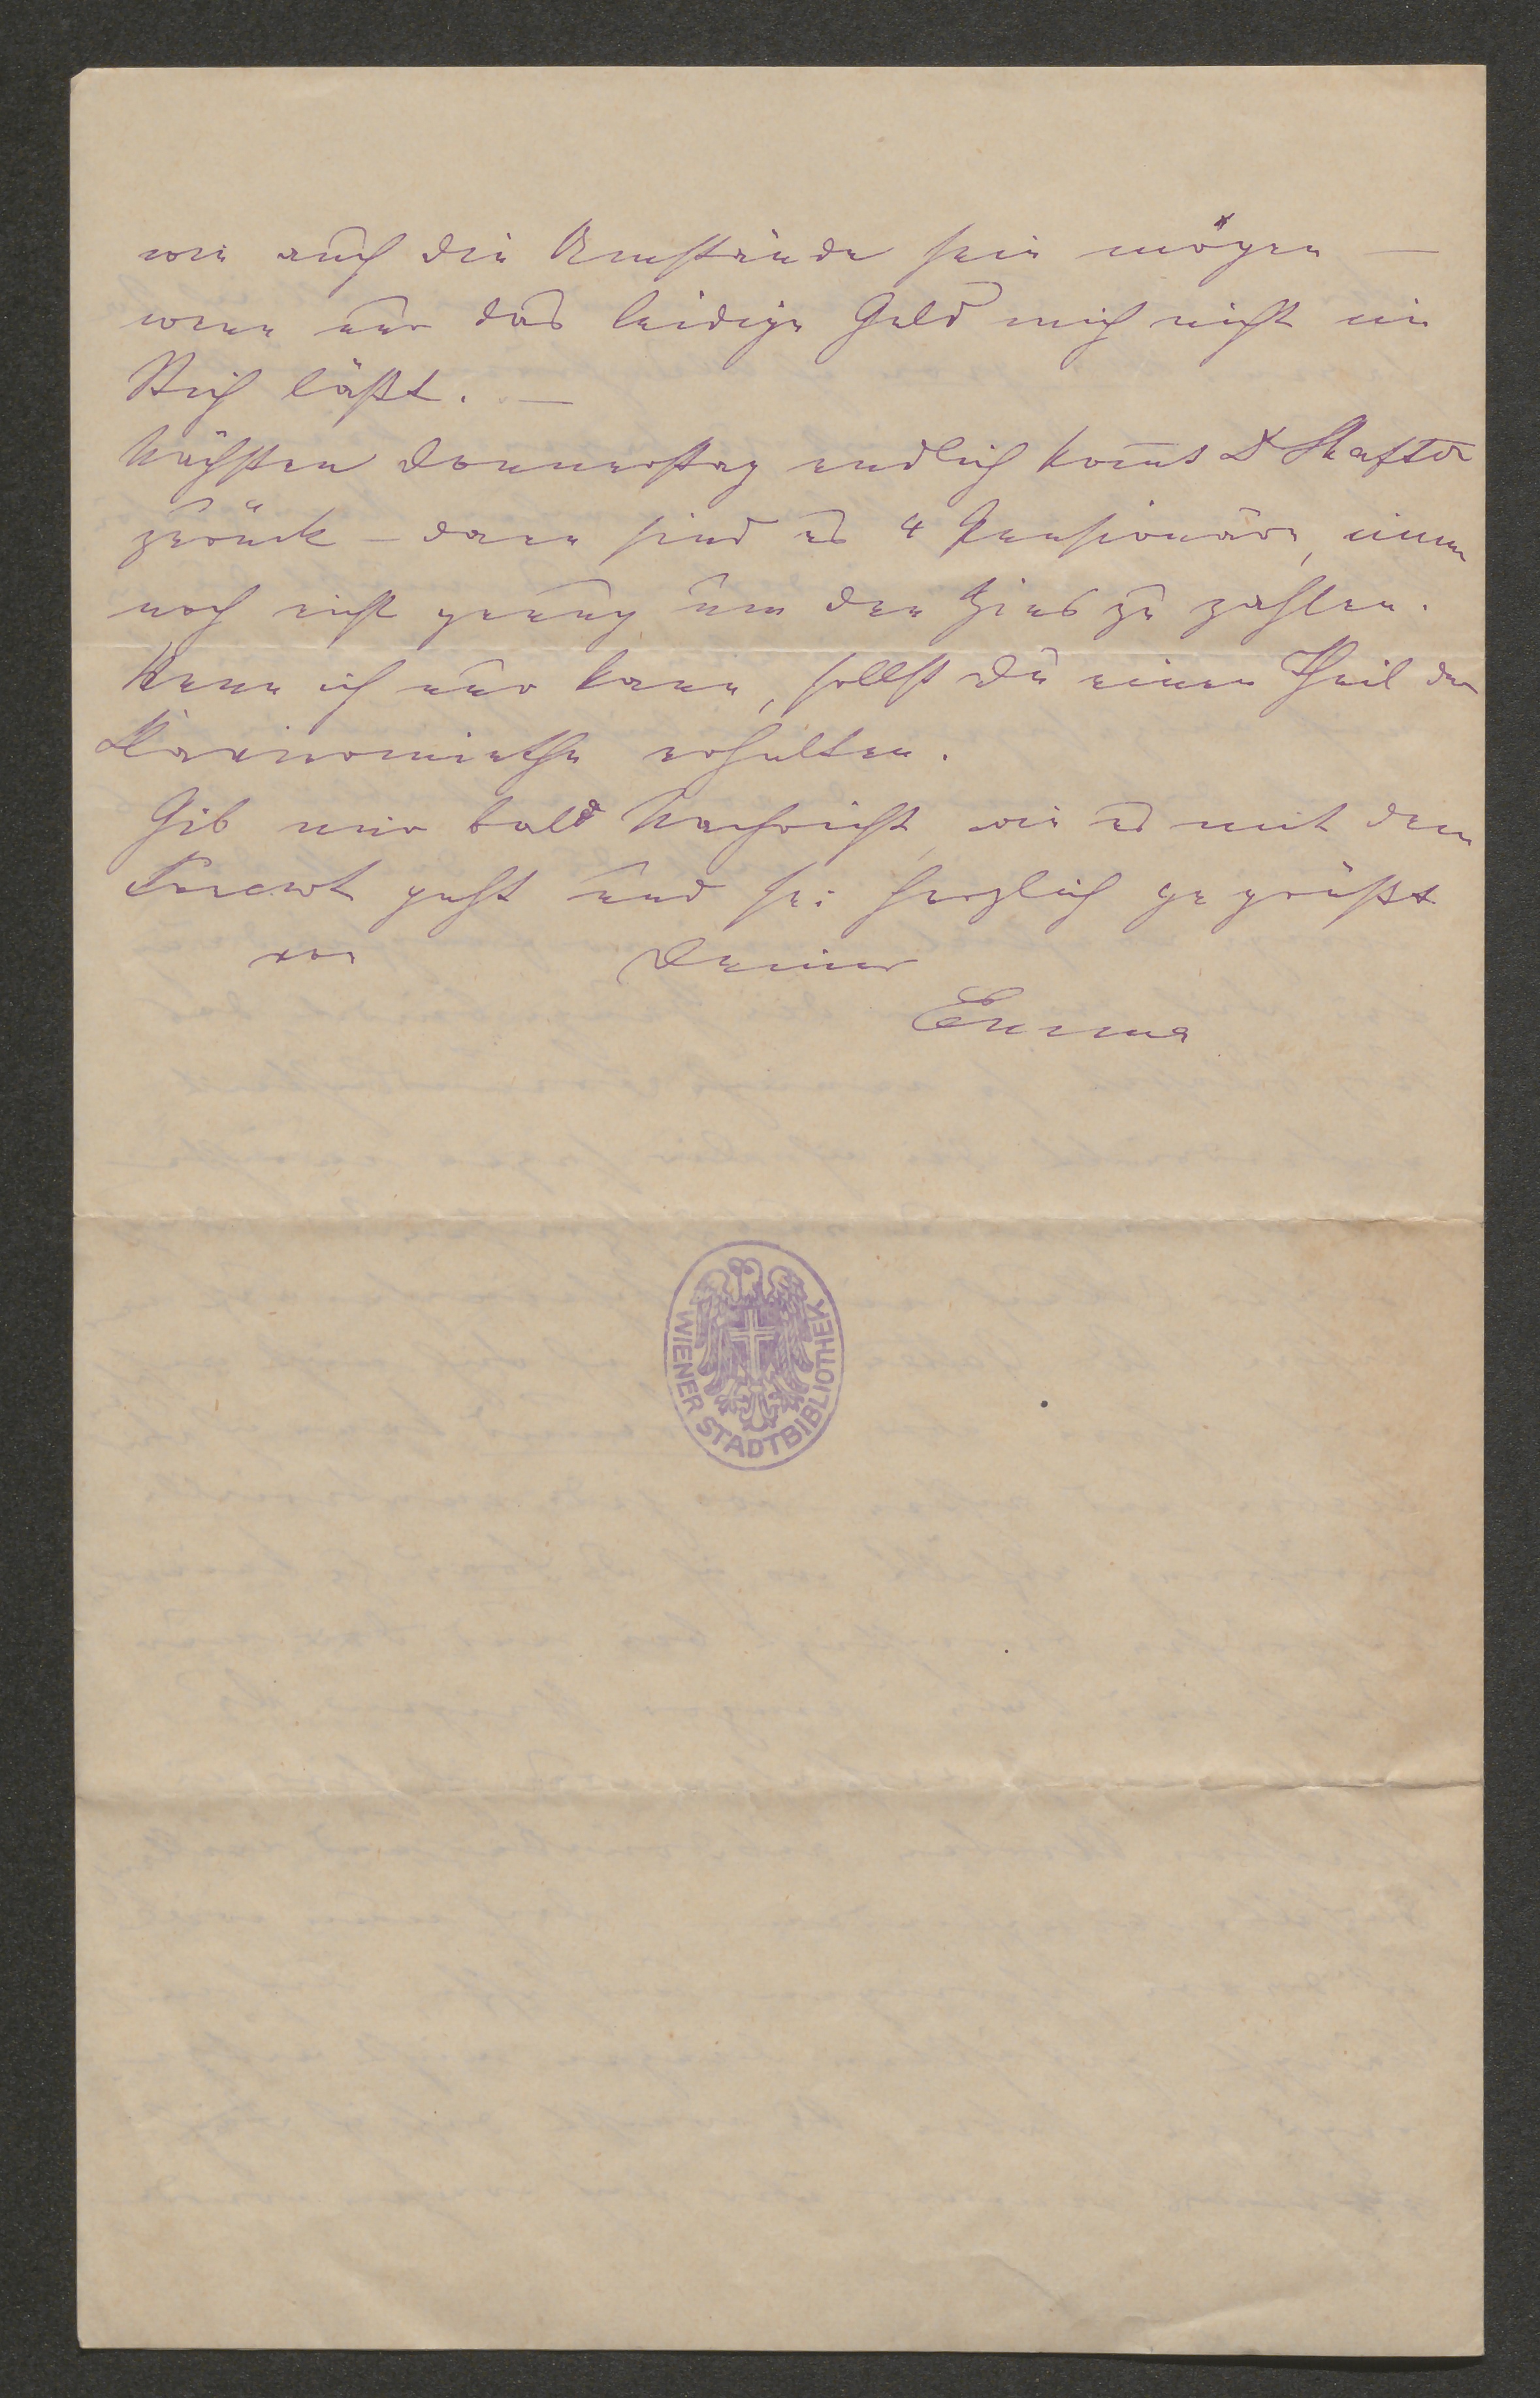 wie auch die Umstände sein mögen —
wenn nur das leidige Geld mich nicht im
Stich läßt. —
Nächsten Donnerstag endlich kom̅t Dr
zurück – dann sind es 4 Pensionäre, immer
noch nicht genug um den Zins zu zahlen.
Wenn ich nur kann, sollst Du einen Theil der
erhalten.
Gib mir bald Nachricht, wie es mit dem
geht und sei herzlich gegrüßt
von Deiner
Emma
WIENER STADTBIBLIOTHEK